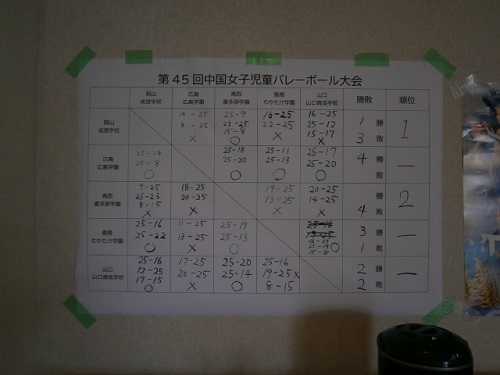 第45回中国女子児童バレーボール大会
岡山 成徳学校 広島 広島学園 鳥取 喜多原学園 島根 わかたけ学園 山口 山口育成学校 勝敗 順位
岡山 成徳学校
19-25 25-9 16-25 16-25
8-25 22-25 22-25 25-12
× 15-8 × 15-17
○ ×
1 勝 3 敗
1
広島 広島学園
25-14 25-18 25-11 25-17
25-8 25-20 25-13 25-20
○ ○ ○
4 勝 敗
鳥取 喜多原学園
9-25 18-25 19-25 20-25
25-23 20-25 13-25 14-25
8-15 × × ×
×
勝 4 敗
2
島根 わかたけ学園
25-16 11-25 25-19
25-22 13-25 25-13
○ × ○ ○
3 勝 1 敗
山口 山口育成学校
25-16 17-25 25-20 25-16
12-25 20-25 25-14 19-25 ×
17-15 × ○ 8-15
○
2 勝 2 敗